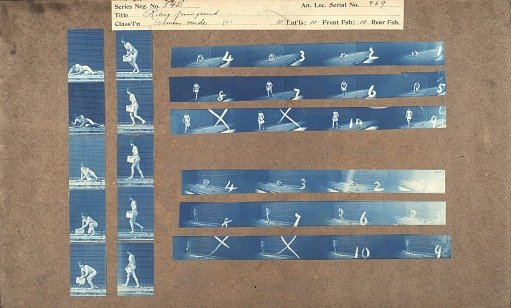 Series Neg. No. An. Loc. Serial No. 969
Title Rising from ground
Class't'n Women nude (4) 10 Lat'ls: 10 Front Fsh: 10 Rear Fsh.
4 3 2 1
8 7 6 5
X X 10 9
4 3 2
7 6
X X 10 9